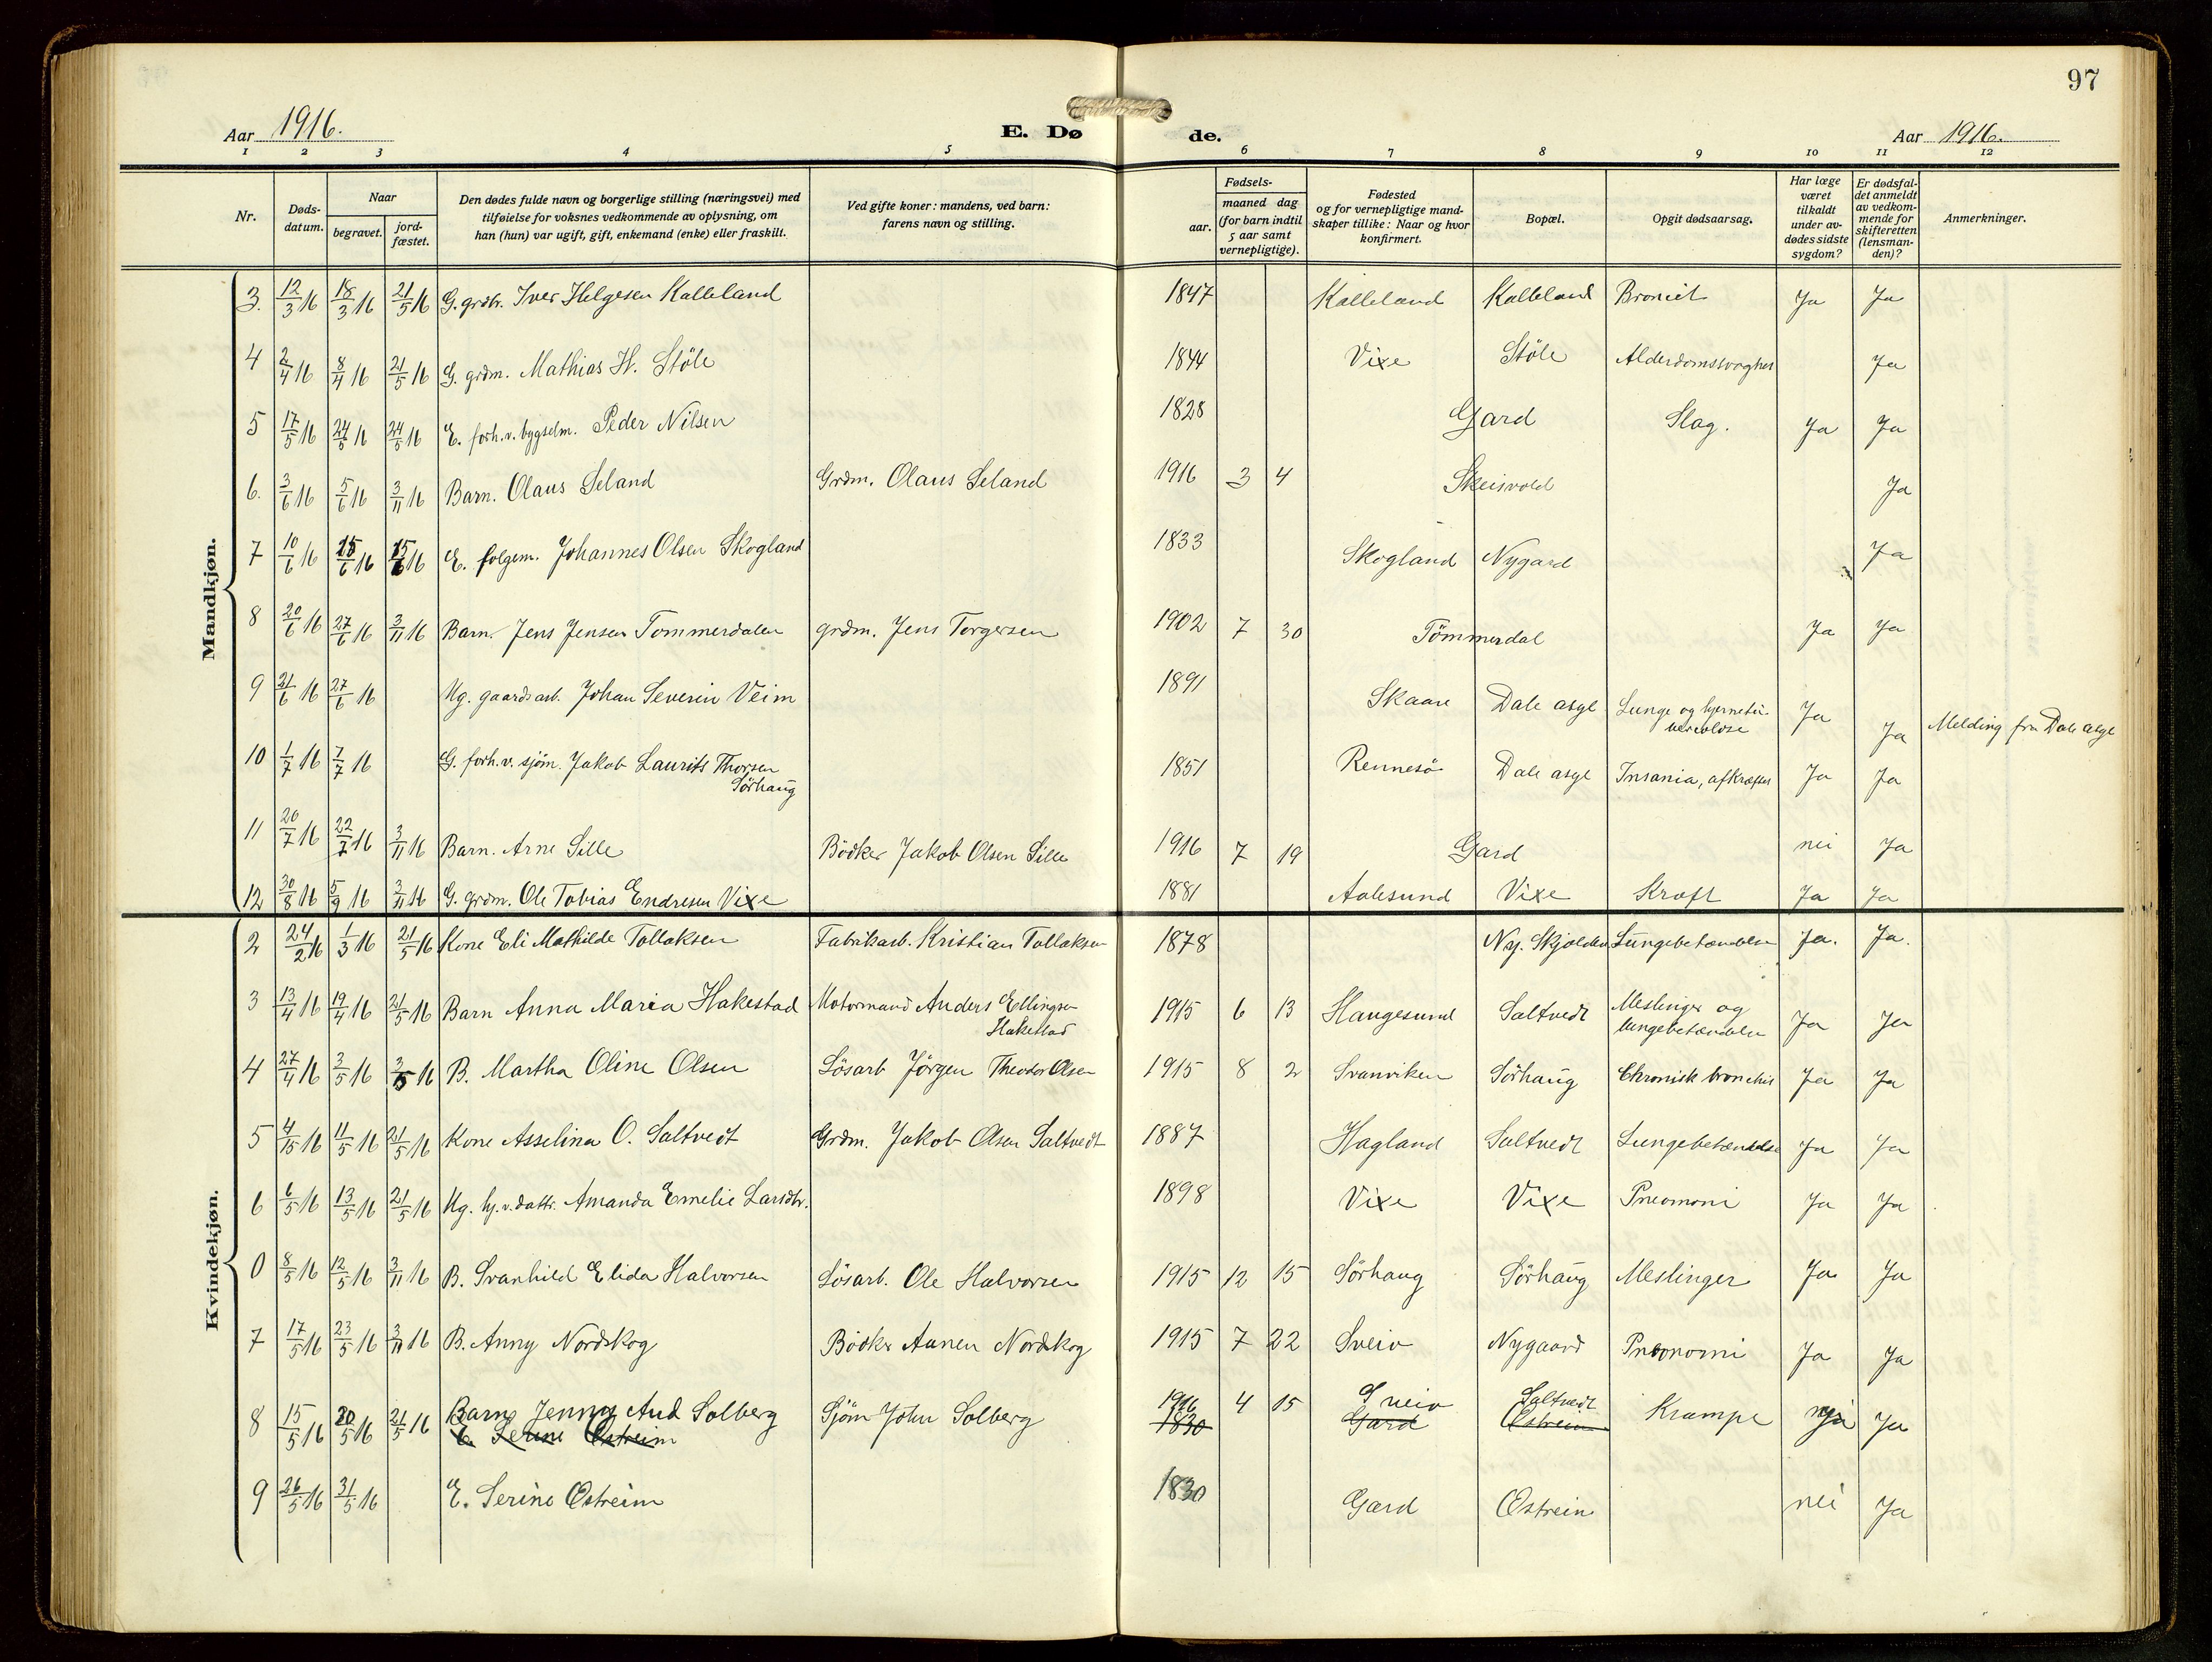 97
Aar 1916.
E. Døde.
Aar 1916.
1 2 3 4 5 6 7 8 9 10 11 12
Nr.
Døds-datum.
Naar
begravet.
jord-fæstet.
Den dødes fulde navn og borgerlige stilling (næringsvei) med
tilføielse for voksnes vedkommende av oplysning, om
han (hun) var ugift, gift, enkemand (enke) eller fraskilt.
Ved gifte koner: mandens, ved barn:
farens navn og stilling.
Fødsels-
aar.
maaned dag
(for barn indtil
5 aar samt
vernepligtige).
Fødested
og for vernepligtige mand-
skaper tillike: Naar og hvor
konfirmert.
Bopæl.
Opgit dødsaarsag.
Har læge
været
tilkaldt
under av-
dødes sidste
sygdom?
Er dødsfal-
det anmeldt
av vedkom-
mende for
skifteretten
(lensman-
den)?
Anmerkninger.
Mandkjøn.
3. 12/3 16 18/3 16 21/5 16 G. grdbr. Iver Helgesen Kalleland 1847 Kalleland Kalleland Broncit Ja Ja
4 2/4 16 8/4 16 21/5 16 G. grdm. Mathias H. Støle 1844 Vixe Støle Alderdomssvaghet Ja
5 17/5 16 24/5 16 24/5 16 E. forh.v. bygselm. Peder Nilsen 1828 Gard Slag. Ja Ja
6. 3/6 16 5/6 16 3/11 16 Barn. Olaus Seland Grdm. Olaus Seland 1916 3 4 Skeisvold Ja
7 10/6 16 15/6 16 15/6 16 E. folgem. Johannes Olsen Skogland 1833 Skogland Nygard Ja
8 20/6 16 27/6 16 3/11 16 Barn. Jens Jensen Tommerdalen grdm. Jens Torgersen 1902 7 30 Tömmerdal Ja Ja
9 21/6 16 27/6 16 Ug. gaardsarb. Johan Severin Veim 1891 Skaare Dale asyl Lunge og hjernetu-
berculose Ja Ja Melding fra Dale asyl
10 1/7 16 7/7 16 G. forh.v. sjøm. Jakob Laurits Thorsen
Sørhaug 1851 Rennesö Dale asyl Insania, afkræftet Ja Ja
11 20/7 16 22/7 16 3/11 16 Barn. Arne Sille Bödker Jakob Olsen Sille 1916 7 19 Gard nei Ja
12 30/8 16 5/9 16 3/11 16 G. grdm. Ole Tobias Endresen Vixe 1881 Aalesund Vixe Kræft Ja Ja
Kvindekjøn.
2 24/2 16 1/3 16 21/5 16 Kone Eli Mathilde Tollaksen Fabrikarb. Kristian Tollaksen 1878 Ny. Skjolden Lungebetændelse Ja. Ja.
3 13/4 16 19/4 16 21/5 16 Barn Anna Maria Hakestad Motormand Anders Ellingsen
Hakestad 1915 6 13 Haugesund Saltvedt Meslinger og
lungebetændelse Ja Ja
4 27/4 16 3/5 16 3/5 16 B. Martha Oline Olsen Lösarb Jörgen Theodor Olsen 1915 8 2 Svanviken Sørhaug Chronisk bronchit Ja Ja
5 4/5 16 11/5 16 21/5 16 Kone Asselina O. Saltvedt Grdm. Jakob Olsen Saltvedt 1887 Hagland Saltvedt Lungebetændelse Ja Ja
6 6/5 16 13/5 16 21/5 16 Ug. hj.v. dattr. Amanda Emelie Larsdtr. 1898 Vixe Vixe Pneomoni Ja Ja
0 8/5 16 12/5 16 3/11 16 B. Svanhild Elida Halvorsen Lösarb. Ole Halvorsen 1915 12 15 Sørhaug Sørhaug Meslinger Ja Ja
7 17/5 16 23/5 16 3/11 16 B. Anny Nordskog Bödker Aanen Nordskog 1915 7 22 Sveio Nygaard Pneonomi Ja Ja
8 15/5 16 20/5 16 21/5 16 Barn Jenny Aud Solberg Sjöm John Solberg 1916 4 15 Sveio Saltvedt Krampe nei Ja
E. Serine Østreim 1830 Gard Østreim
9 26/5 16 31/5 16 E. Serine Østreim 1830 Gard Østrein nei Ja